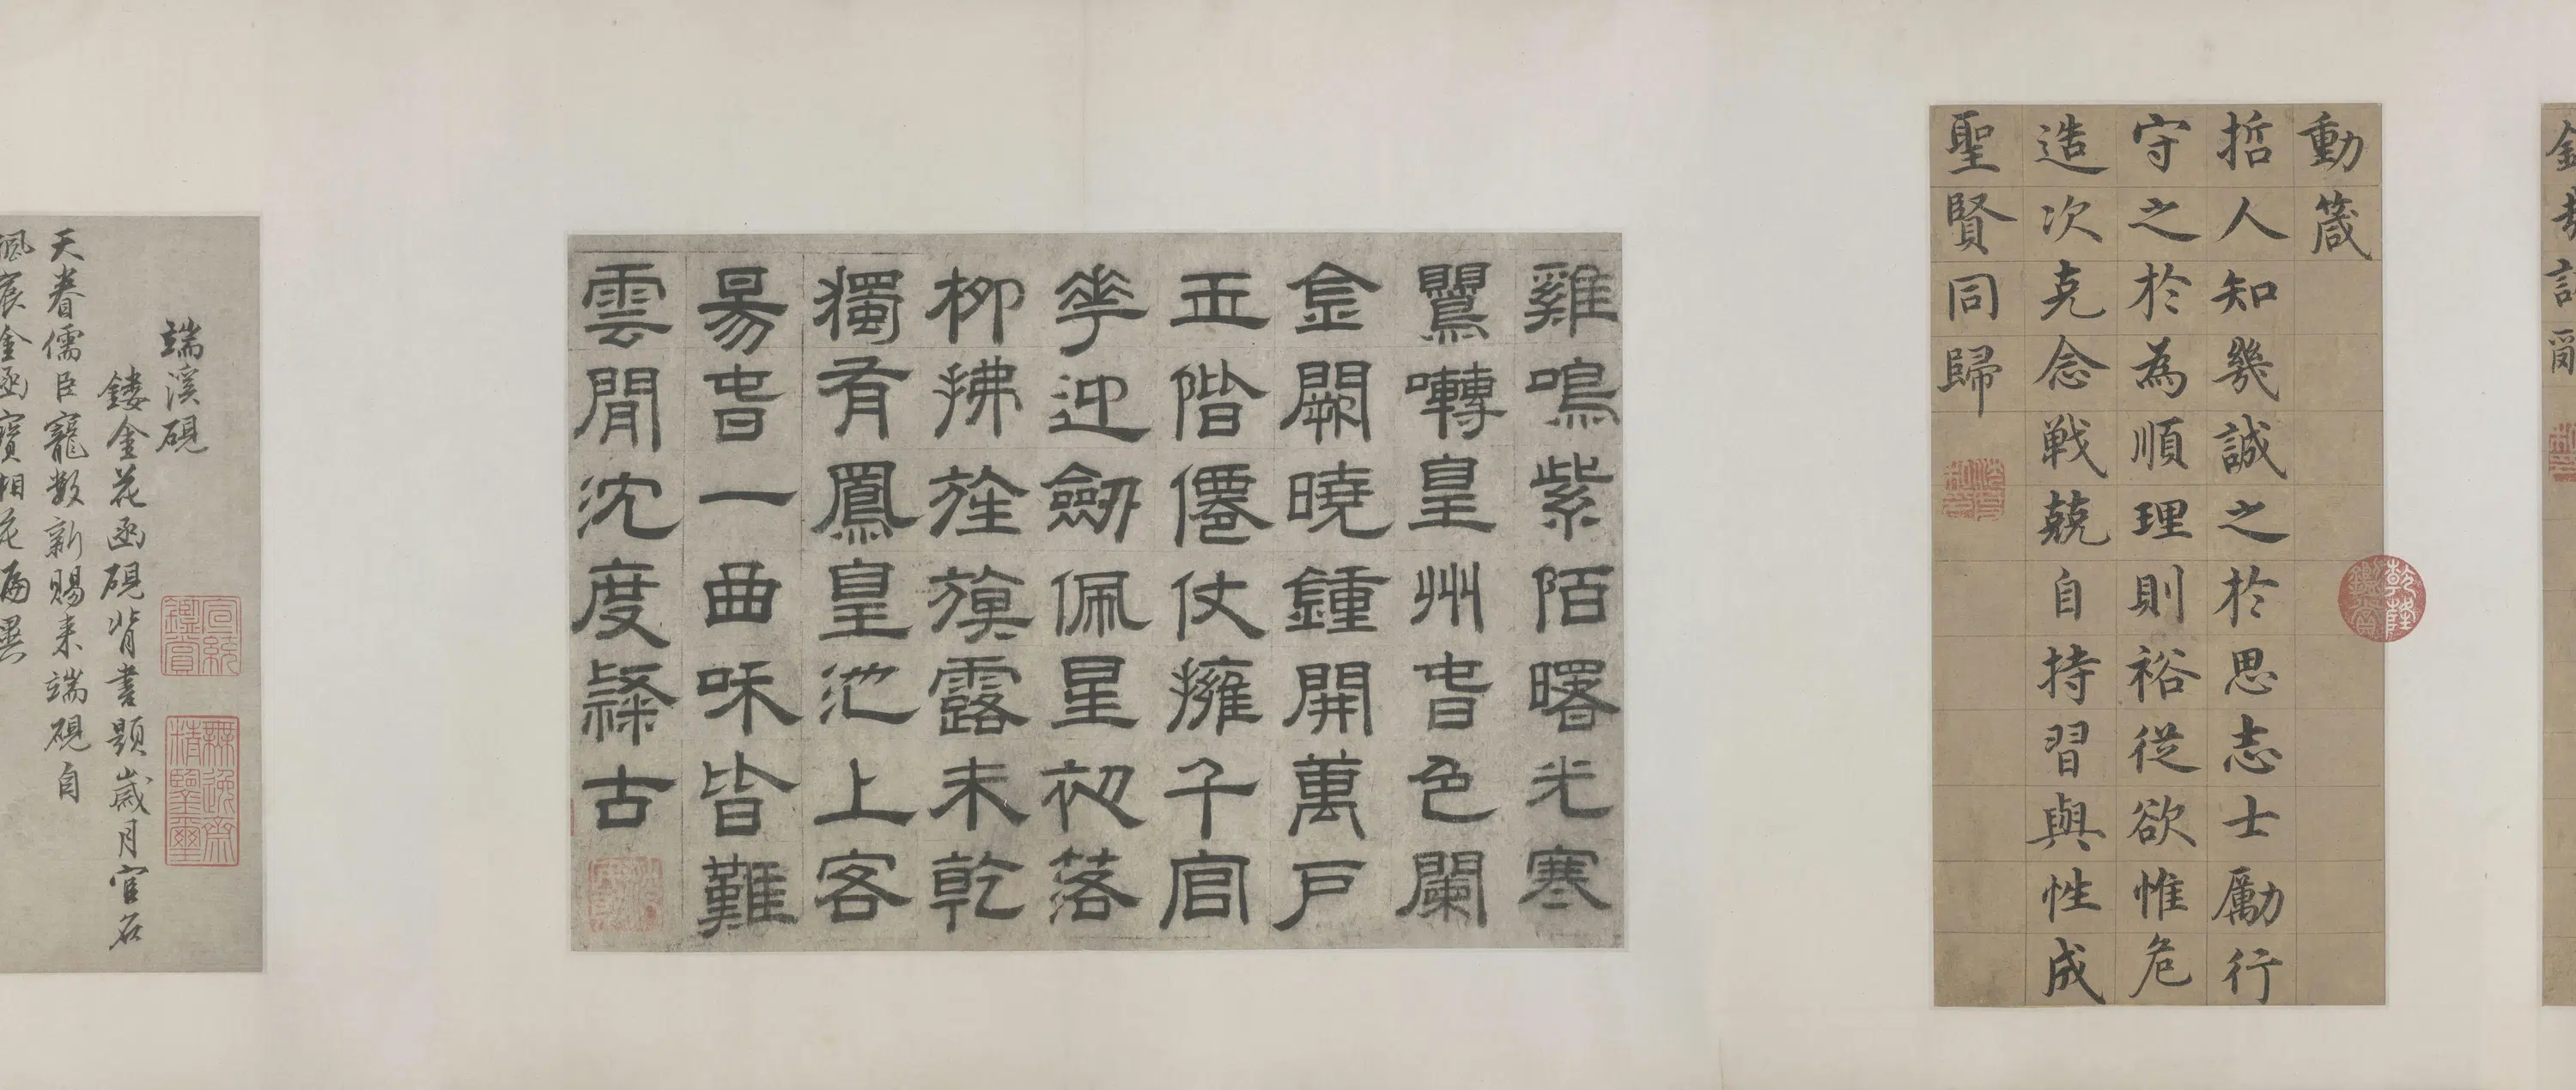 欽哉訓辭
動箴
哲人知幾誠之於思志士勵行
守之於為順理則裕從欲惟危
造次克念戰兢自持習與性成
聖賢同歸
乾隆鑑賞
雞鳴紫陌曙光寒
鶯囀皇州旹色闌
金闕曉鍾開萬戶
玉階僊仗擁千官
花迎劒佩星初落
柳拂旌旗露未乾
獨有鳳皇池上客
昜旹一曲咊皆難
雲閒沈度隸古
宣統鑑賞
無逸齋精鑒璽
端溪硯
鏤金花函硯背書題歲月官名
天眷儒臣寵數新賜來端硯自
楓宸金函寶相花